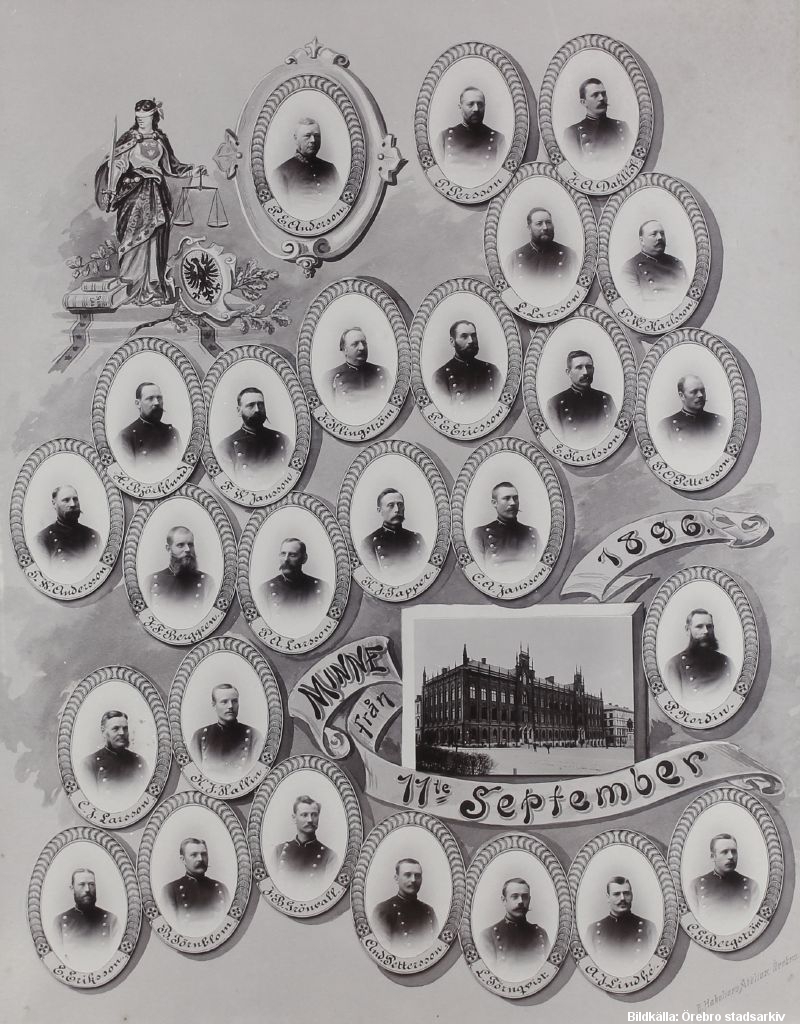 P. E. Anderson.
P. Persson
K. A. Dahllöf.
L. Larsson
F. W. Karlsson.
J. Klingström.
P. E. Ericsson
G. Karlsson.
P. O. Pettersson.
H. Björklund
F. W. Jansson
F. W. Andersson
V. F. Berggren.
P. A. Larsson.
K. J. Tapper.
C. A. Jansson.
1896.
P. Nordin.
MINNE
från
11te September
C. J. Larsson
K. J. Hallin
J. B. Grönvall
E. Eriksson.
B. Törnblom
And. Pettersson
L. Törnqvist
A. J. Lindhé.
C. G. Bergström
Atelier. Örebro.
Bildkälla: Örebro stadsarkiv